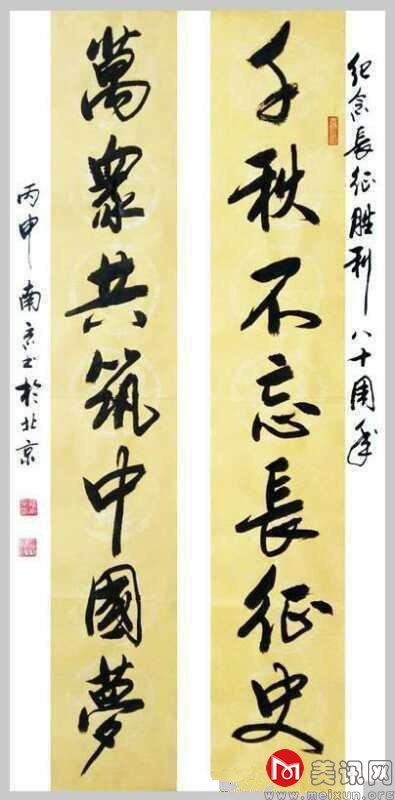 纪念長征胜利八十周年
千秋不忘長征史
萬眾共筑中國夢
丙申南京书於北京
美讯网
www.meixun.org